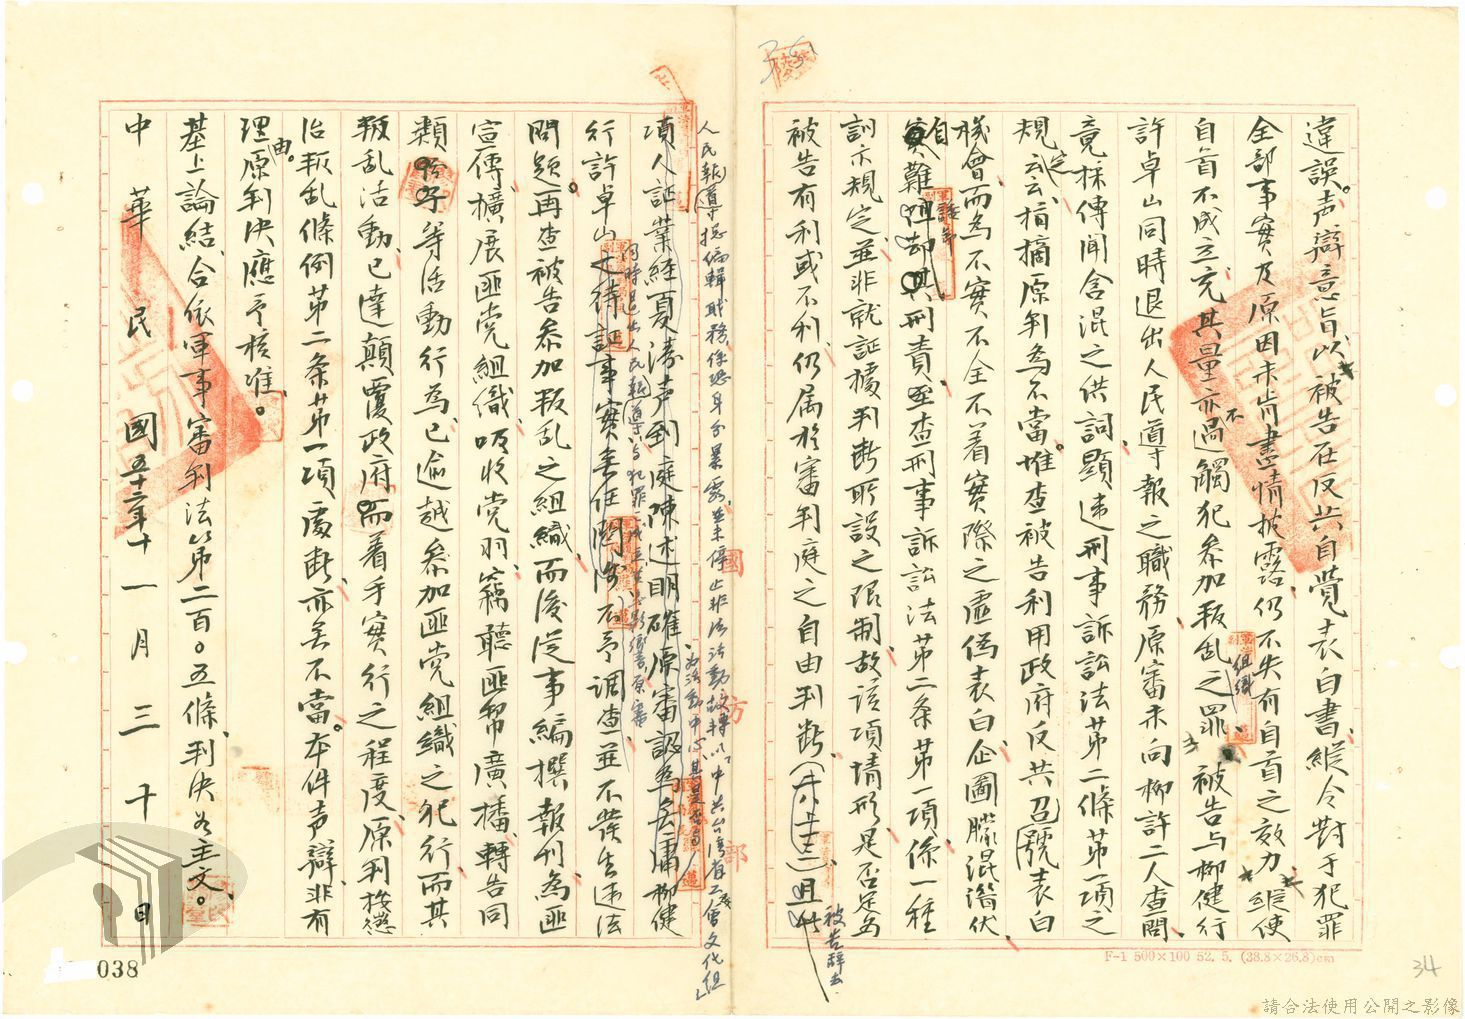 違誤。声辯意旨以被告在反共自覺表白書縱令對于犯罪
全部事實及原因未肯盡情披露仍不失有自首之效力縱使
自首不成立充其量亦不過觸犯參加叛乱組織之罪被告与柳健行
許卓山同時退出人民導報之職務原審未向柳許二人查問
竟採傳聞含混之供詞顯违刑事訴訟法第二條第一項之
規定云云指摘原判為不當。惟查被告利用政府反共召號表白
機會而為不實不全不着實際之虛偽表白企圖朦混潛伏
自難
刑責至查刑事訴訟法第二条第一項係一種
訓示規定並非就証據判断所設之限制故該項情形是否足為
被告有利或不利仍属於審判庭之自由判断
被告辞去
人民導報總編輯職務係恐身分暴露並未停止非法活動故轉以中共台湾省工委會文化組
為活動中心
項人証業經夏濤声到庭陳述明確原審認為無庸柳健
行許卓山
同時退出人民導報与犯罪成立
原審
不予調查並不發生违法
問題。再查被告參加叛乱之組織而後從事編撰報刊為匪
宣傳擴展匪党組織吸收党羽竊聽匪幣廣播轉告同
類
等活動行為已逾越參加匪党組織之犯行而其
叛乱活動已達顛覆政府而着手實行之程度原判按懲
治叛乱條例第二条第一項處断亦無不當。本件声辯非有
理由。原判決應予核准。
基上論結合依軍事審判法第二百〇五條判決如主文。
中華民國五十二年十一月三十日
國防部
F-1 500×100 52. 5. (38.8×26.8)cm
038
34
請合法使用公開之影像